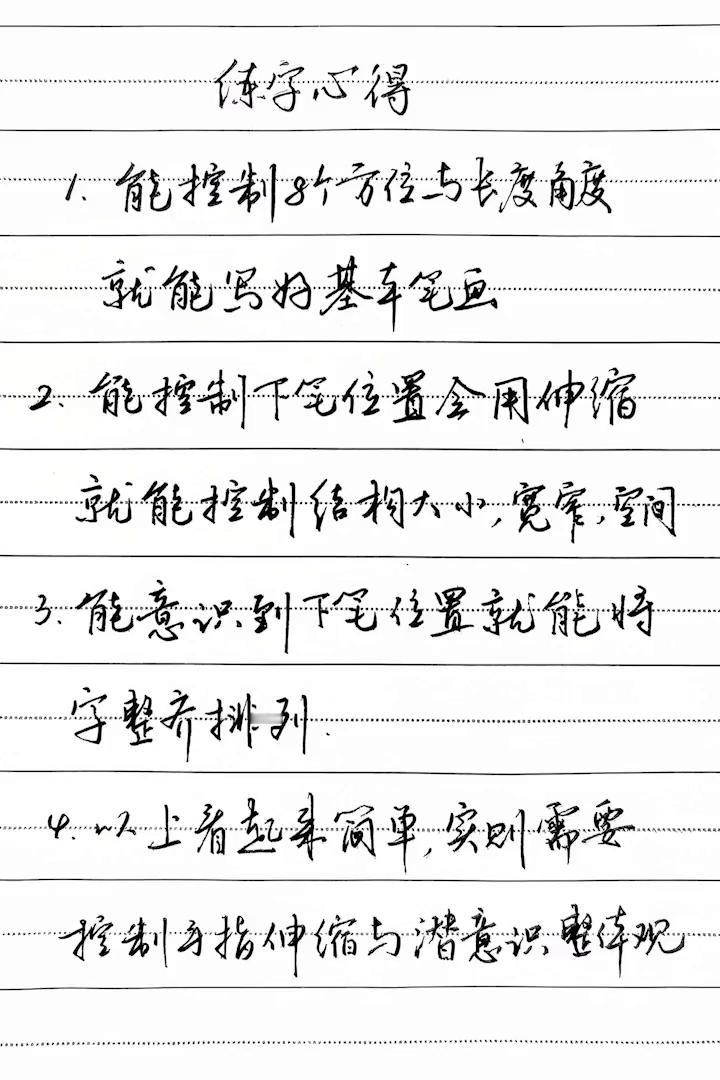 练字心得
1. 能控制8个方位与长度角度
就能写好基本笔画
2. 能控制下笔位置会用伸缩
就能控制结构大小,宽窄,空间
3. 能意识到下笔位置就能将
字整齐排列.
4. 以上看起来简单,实则需要
控制手指伸缩与潜意识整体观